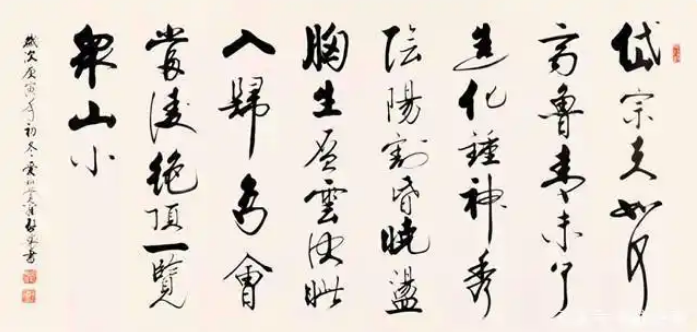 岱宗夫如何
齊魯青未了
造化鍾神秀
陰陽割昏曉盪
胸生層雲決眦
入歸鳥會
當凌絕頂一覽
眾山小
歲次庚寅年初冬 書